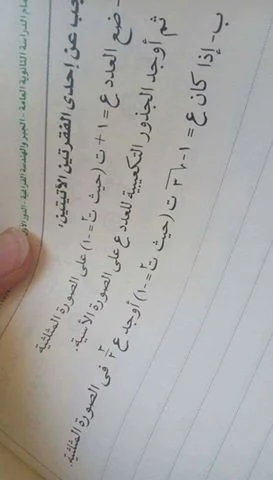 ام الدراسة الثانوية العامة - الجبر والهندسة الفراغية - الدور الأول
جب عن إحدى الفقرتين الآتيتين:
- ضع العدد ع = ١ + ت (حيث ت٢ = -١) على الصورة المثلثية
ثم أوجد الجذور التكعيبية للعدد ع على الصورة الأسية.
ب- إذا كان ع = ١ - √٣ ت (حيث ت٢ = -١) أوجد ع٣/٢ فى الصورة المثلثية.